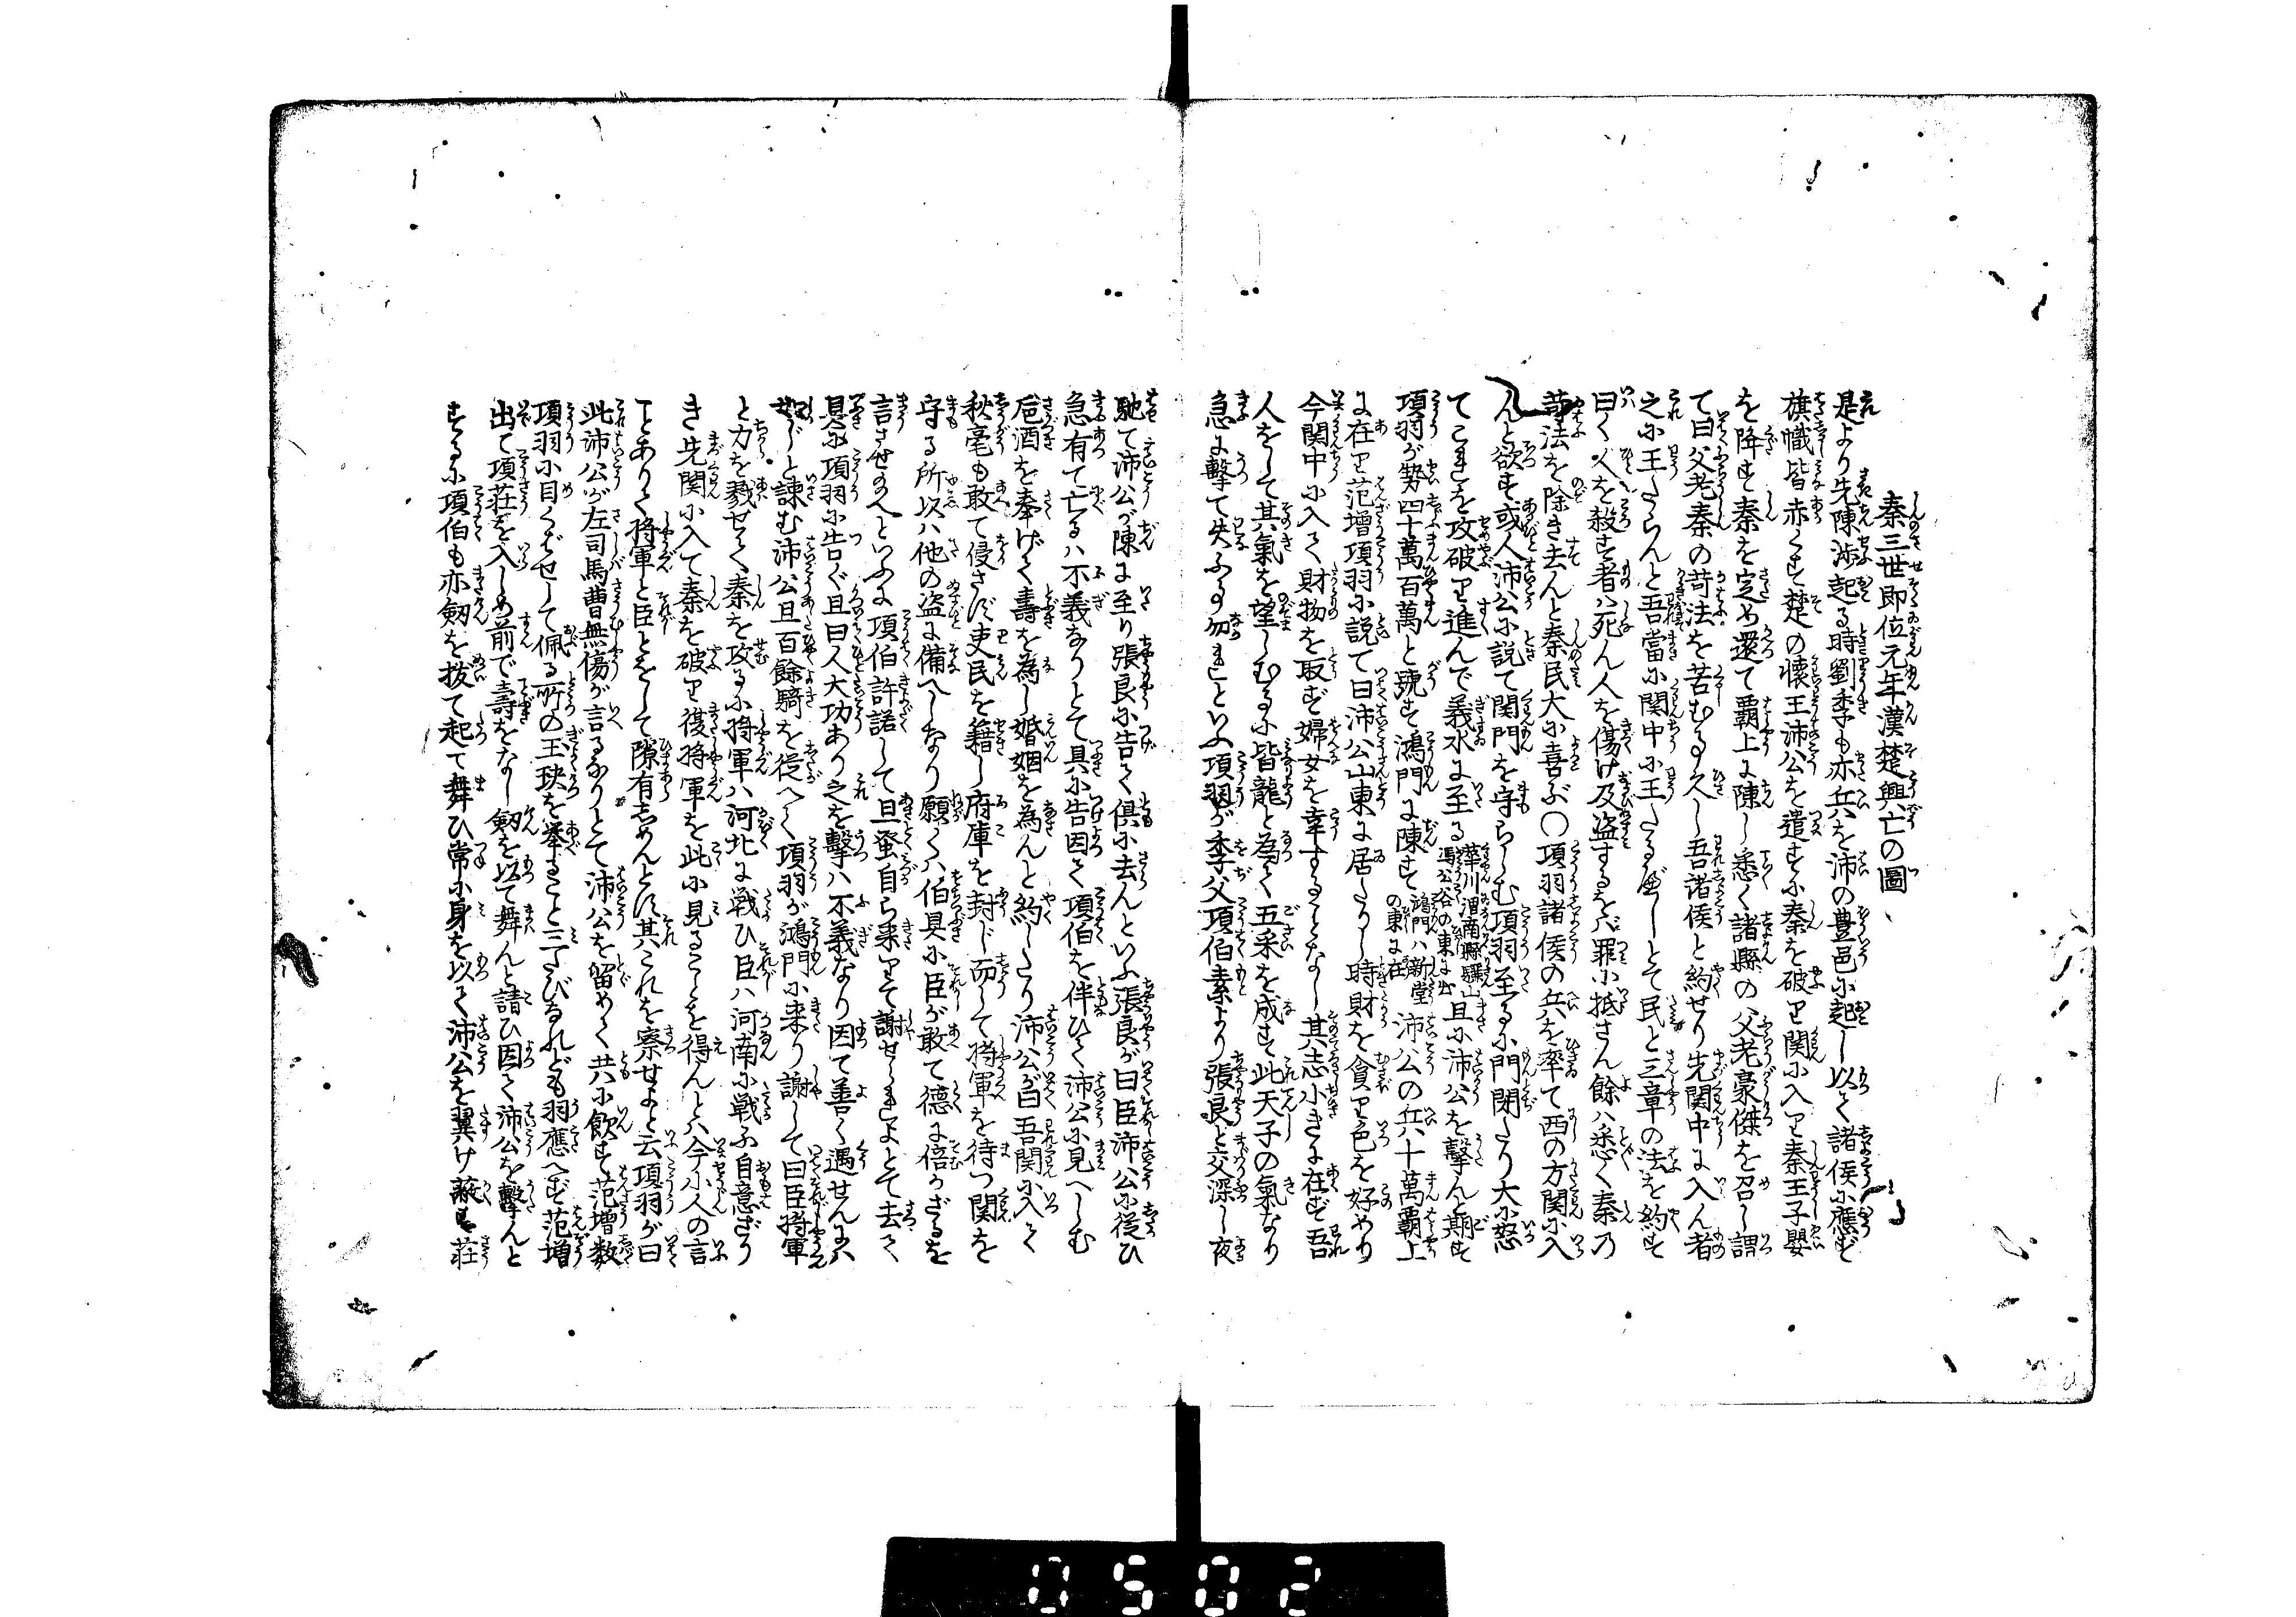 秦三世即位元年漢楚興亡の圖
是より先陳渉起る時劉季も亦兵を沛の豊邑に起し以て諸侯に應ず
旗幟皆赤くす楚の懐王沛公を遣すに秦を破り関に入り秦王子嬰
を降す秦を定め還て覇上に陳し悉く諸縣の父老豪傑を召し謂
て曰父老秦の苛法を苦むる久し吾諸侯と約せり先関中に入ん者
之に王たらんと吾當に関中に王たるべしとて民と三章の法を約す
曰く人を殺す者ハ死ん人を傷け及盗するをバ罪に抵さん餘ハ悉く秦乃
苛法を除き去んと秦民大に喜ぶ〇項羽諸侯の兵を率て西の方関に入
んと欲す或人沛公に説て関門を守らしむ項羽至るに門閉たり大に怒
てこれを攻破り進んで義水に至る華川渭南縣驪山馮公谷の東に出且に沛公を擊んと期す
項羽が勢四十萬百萬と號す鴻門に陳す鴻門ハ新堂の東に在沛公の兵十萬覇上
に在り范增項羽に説て曰沛公山東に居たりし時財を貪り色を好めり
今関中に入て財物を取ず婦女を幸することなし其志小きに在ず吾
人をして其氣を望しむるに皆龍と為て五采を成す此天子の氣なり
急に擊て失ふる勿れといふ項羽が季父項伯素より張良と交深し夜
馳て沛公が陳に至り張良に告て倶に去んといふ張良が曰臣沛公に従ひ
急有て亡るハ不義なりとて具に告因て項伯を伴ひて沛公に見へしむ
巵酒を奉げて壽を為し婚姻を為んと約したり沛公が曰吾関に入て
秋毫も敢て侵さず吏民を籍し府庫を封じ而して将軍を待つ関を
守る所以ハ他の盗に備へしなり願くハ伯具に臣が敢て德に倍かざるを
言させ給へといふに項伯許諾して旦蚤自ら来りて謝せられよとて去て
具に項羽に告ぐ且曰人大功あり之を擊ハ不義なり因て善く遇せんにハ
せじと諌む沛公旦百餘騎を従へて項羽が鴻門に来り謝して曰臣将軍
と力を戮せて秦を攻るに将軍ハ河北に戦ひ臣ハ河南に戦ふ自意ざり
き先関に入て秦を破り復将軍を此に見ることを得んとハ今小人の言
ことありて将軍と臣とをして隙有しめんとす其これを察せよと云項羽が曰
此沛公が左司馬曹無傷が言るなりとて沛公を留めて共に飲す范増数
項羽に目くばせして佩る所の玉玦を舉ること三たびなれども羽應へず范増
出て項荘を入しめ前で壽をなし剱を以て舞んと請ひ因て沛公を擊んと
するに項伯も亦剱を抜て起て舞ひ常に身を以て沛公を翼け蔽す荘
0502